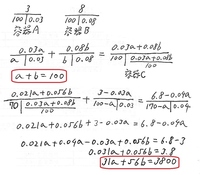 3 8
100 | 0.03 100 | 0.08
容器A 容器B
0.03a + 0.08b = 0.03a+0.08b
a | 0.03 b | 0.08 100 | 0.03a+0.08b/100
容器C
a+b=100
0.021a+0.056b + 3-0.03a = 6.8-0.04a
70 | 0.03a+0.08b/100 100-a | 0.03 170-a | 0.04
0.021a+0.056b+3-0.03a=6.8-0.04a
0.021a+0.04a-0.03a+0.056b=6.8-3
0.031a+0.056b=3.8
31a+56b=3800